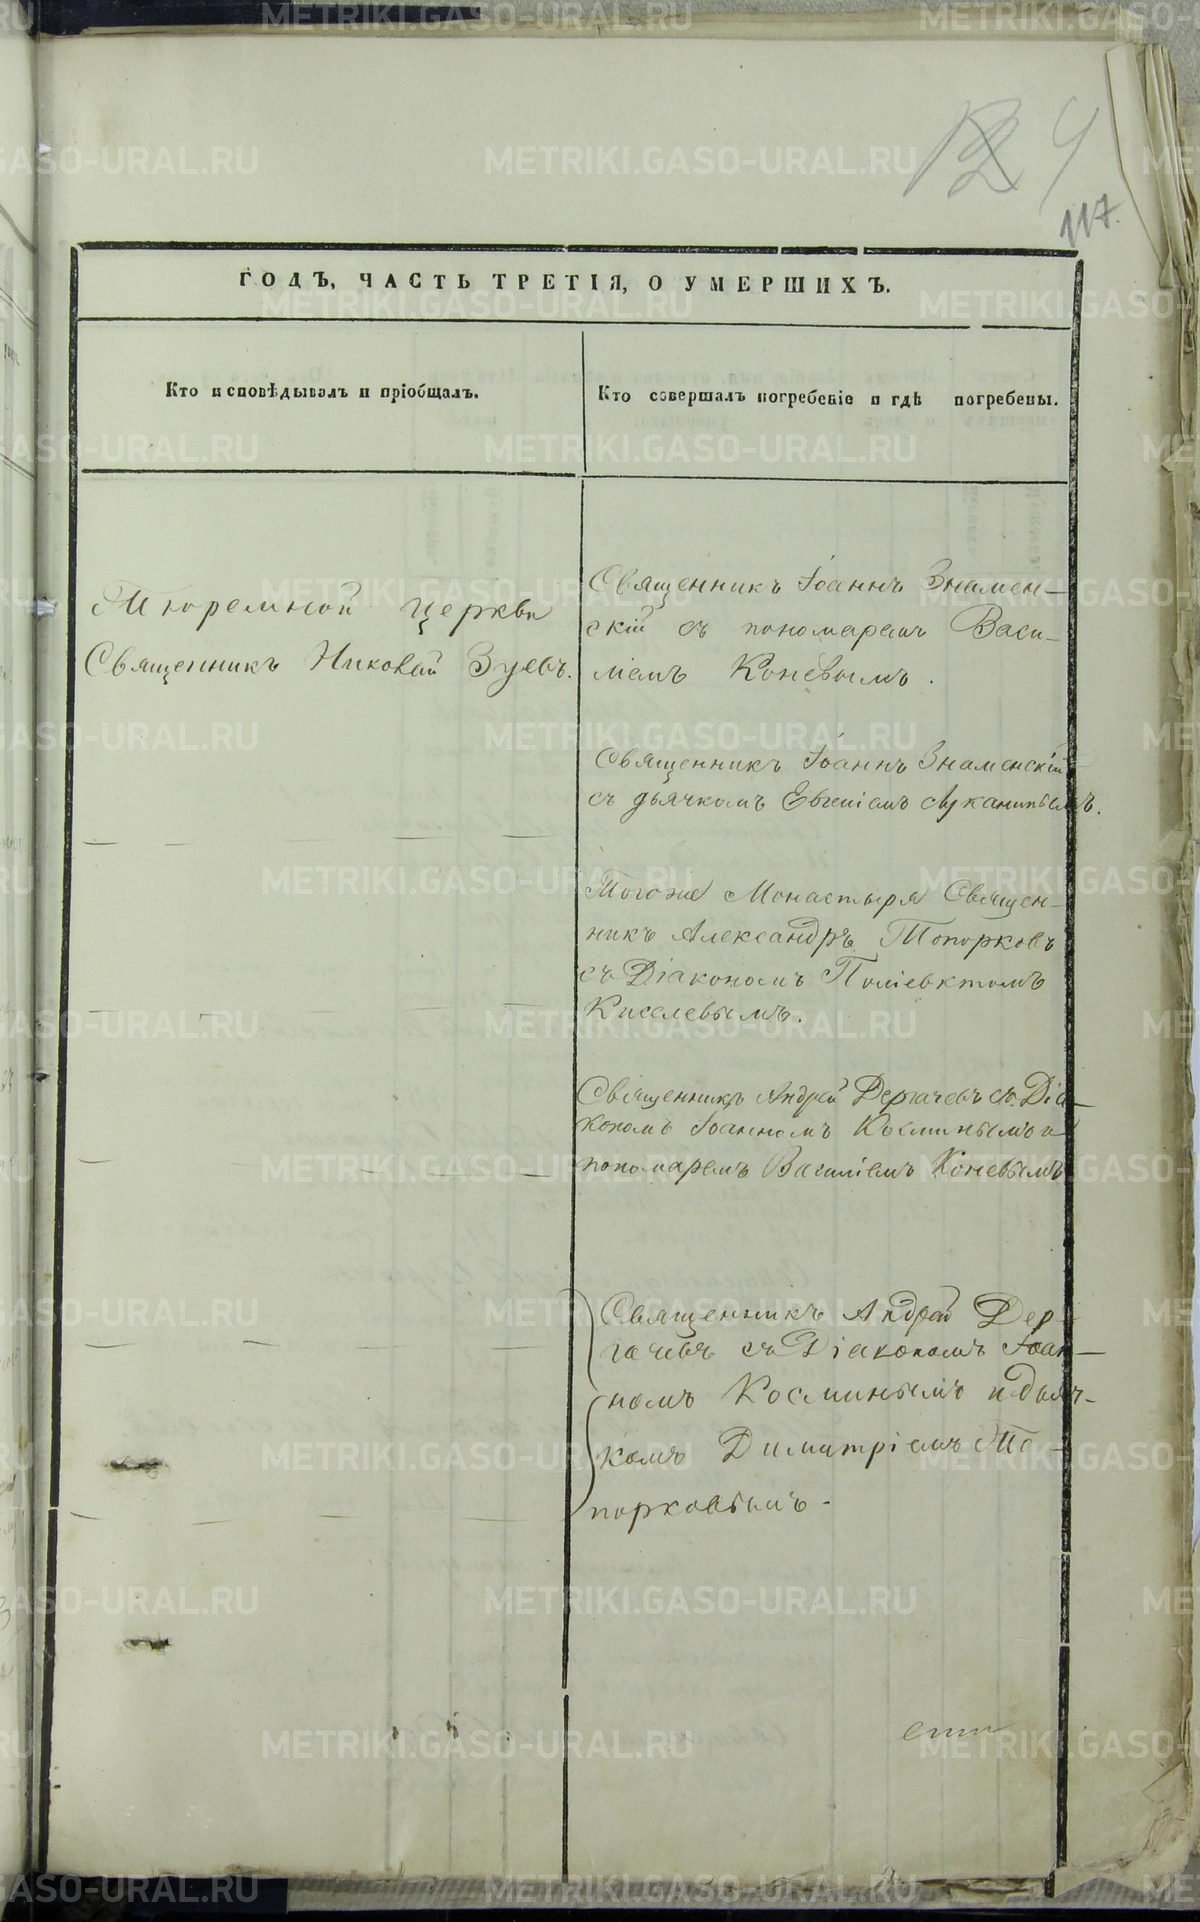 124
117.
ГОДЪ, ЧАСТЬ ТРЕТІЯ, О УМЕРШИХЪ.
Кто исповѣдывалъ и пріобщалъ.
Кто совершалъ погребеніе и гдѣ погребены.
Тюремной церкви
Священникъ Николай Зуевъ.
Священникъ Іоаннъ Знамен-
скій съ пономаремъ Васи-
ліемъ Коневымъ.
Священникъ Іоаннъ Знаменскій
съ дьячкомъ Евгеніемъ Луканинымъ.
Тогоже Монастыря Священ-
никъ Александръ Топорковъ
съ Діакономъ Поліевктомъ
Киселевымъ.
Священникъ Андрей Дергачевъ съ Діа-
кономъ Іоанномъ Косминымъ и
пономаремъ Василіемъ Коневымъ
Священникъ Андрей Дер-
гачевъ съ Діакономъ Іоан-
номъ Косминымъ и дьяч-
комъ Димитріемъ То-
порковымъ.
METRIKI.GASO-URAL.RU